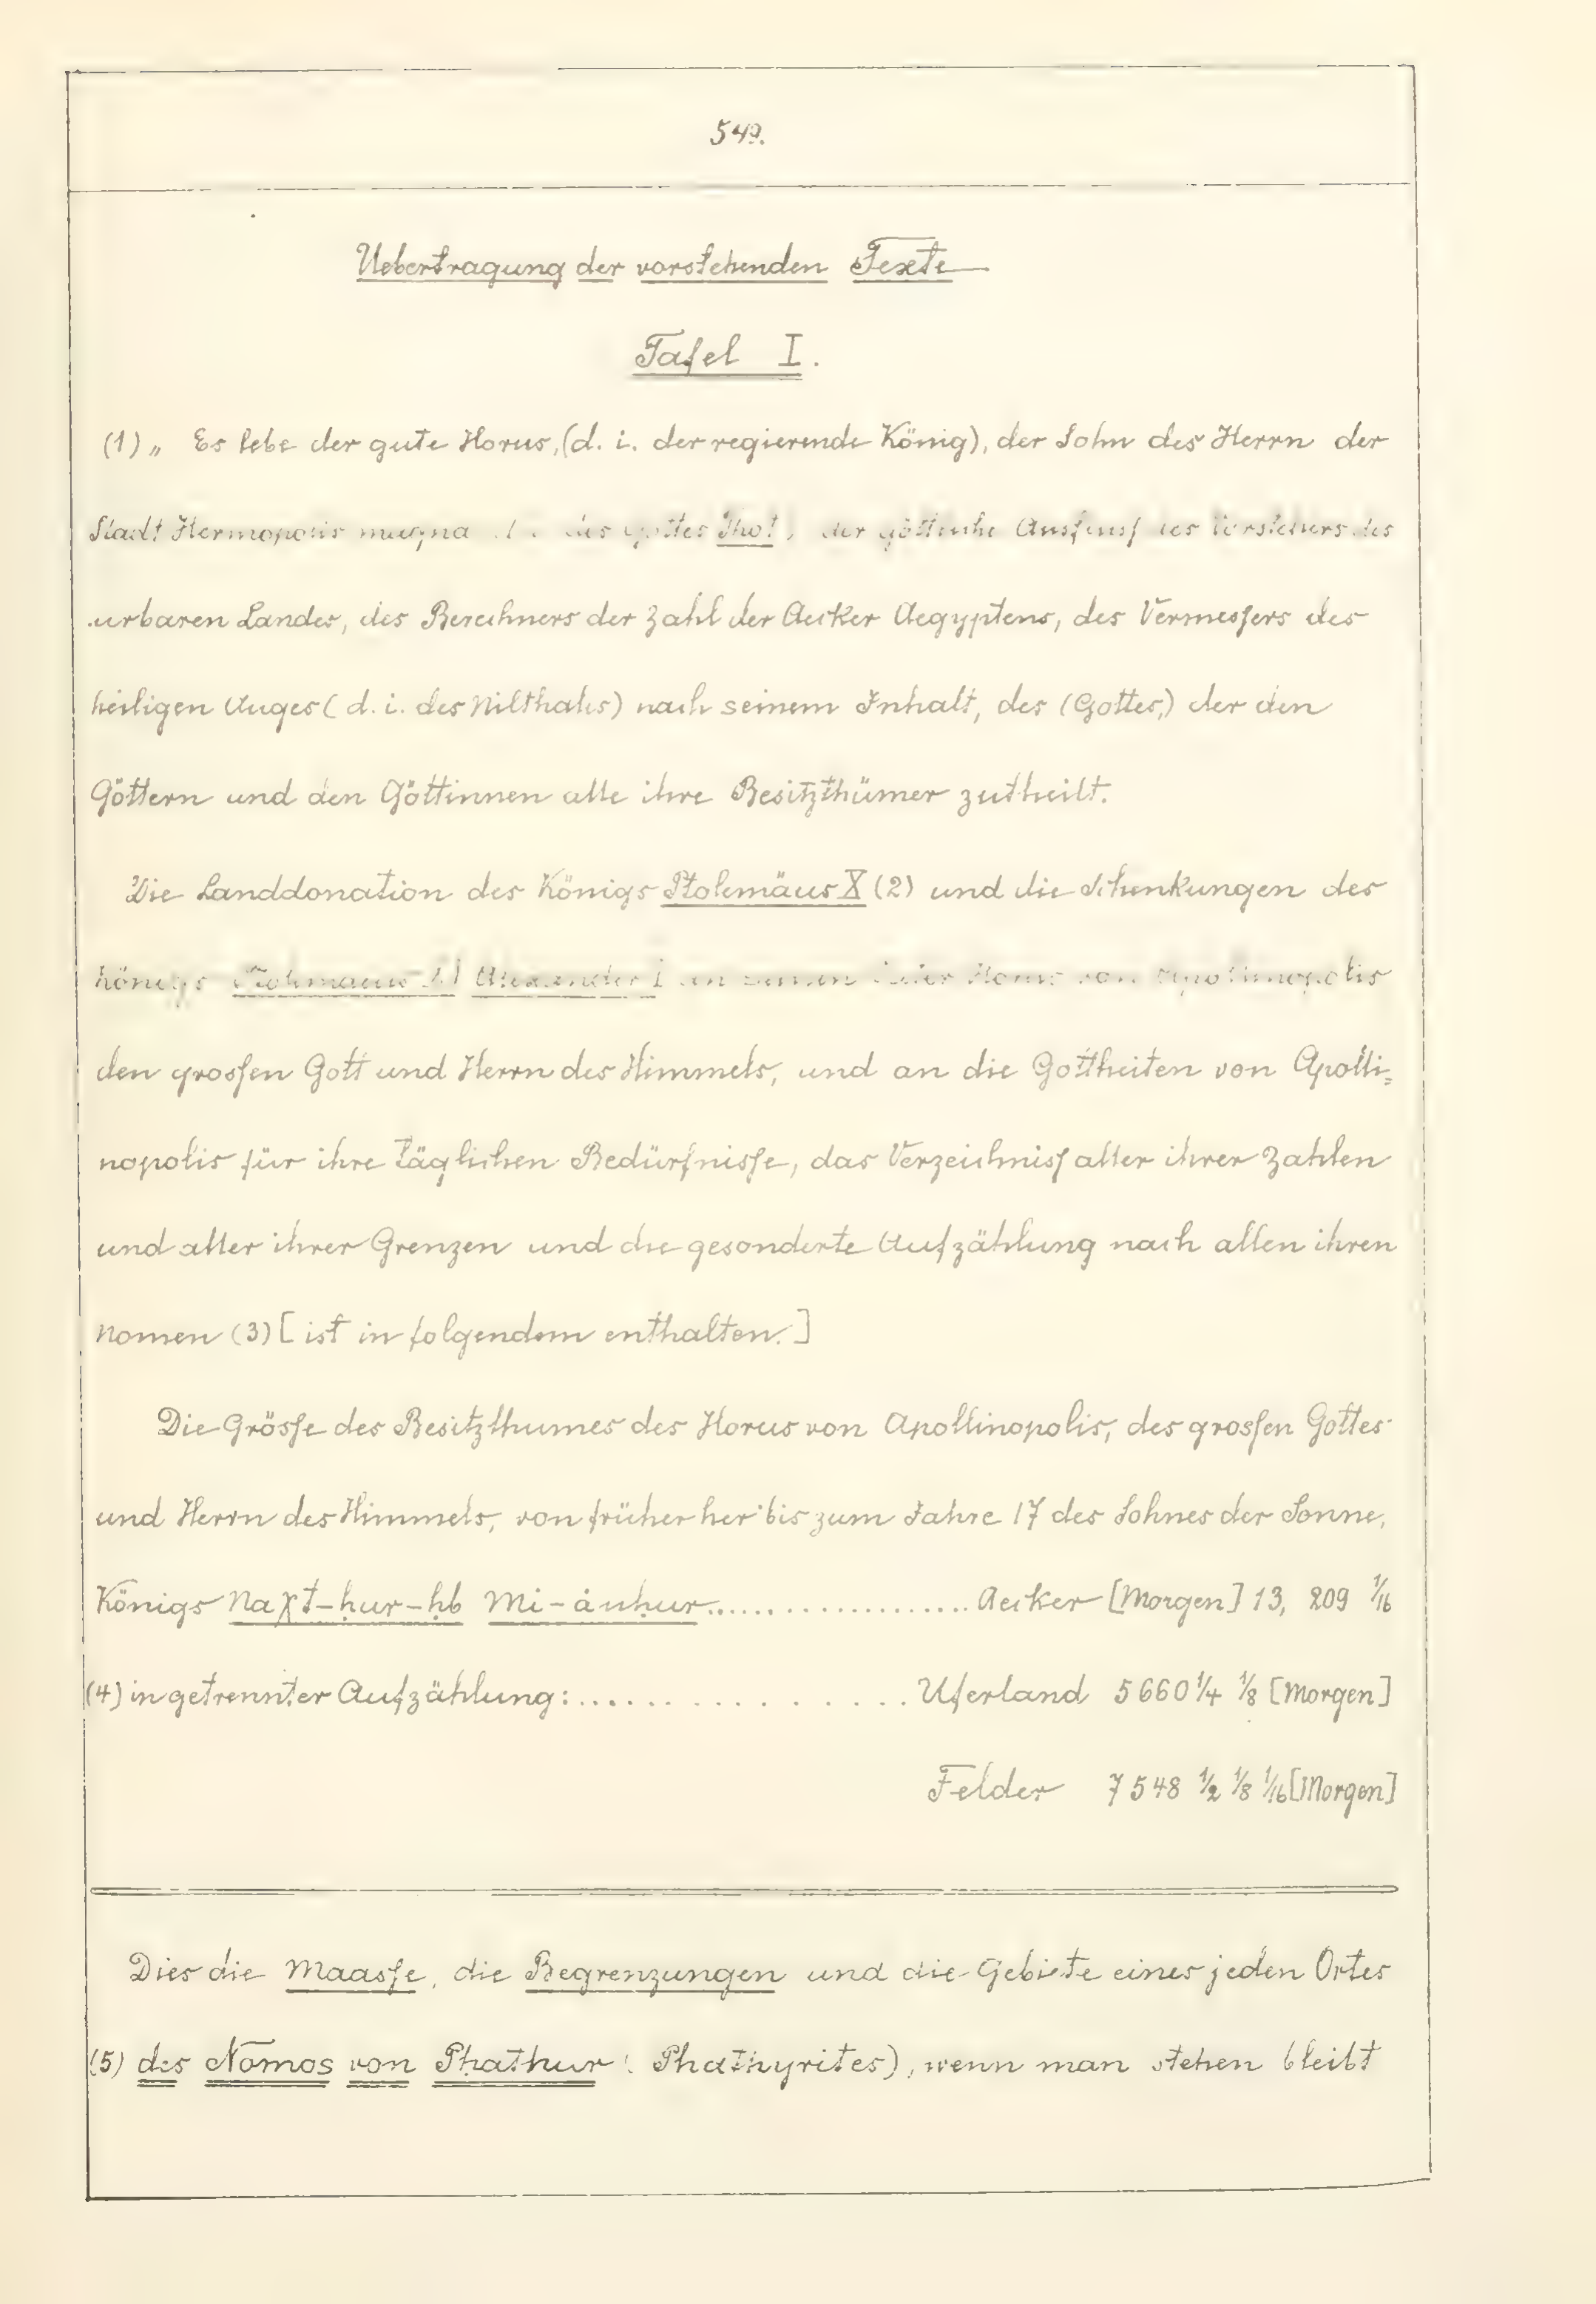 549.
Uebertragung der vorstehenden Texte
Tafel I.
(1) „ Es lebe der gute Horus, (d. i. der regierende König), der Sohn des Herrn der
Stadt Hermopolis magna des Gottes Thot, der göttliche Ausfluss des Vorstehers des
urbaren Landes, des Berechners der Zahl der Aecker Aegyptens, des Vermessers des
heiligen Auges (d. i. des Nilthales) nach seinem Inhalt, des (Gottes,) der den
Göttern und den Göttinnen alle ihre Besitzthümer zutheilt.
Die Landdonation des Königs Ptolemäus X (2) und die Schenkungen des
Königs Ptolemaeus XI Alexander I an seinen Vater Horus von Apollinopolis
den grossen Gott und Herrn des Himmels, und an die Gottheiten von Apolli=
nopolis für ihre täglichen Bedürfnisse, das Verzeichniss aller ihrer Zahlen
und aller ihrer Grenzen und die gesonderte Aufzählung nach allen ihren
Nomen (3) [ist in folgendem enthalten.]
Die Grösse des Besitzthumes des Horus von Apollinopolis, des grossen Gottes
und Herrn des Himmels, von früher her bis zum Jahre 17 des Sohnes der Sonne,
Königs Naχt-ḥur-ḥb Mi-ȧnḥur..................Aecker [Morgen] 13, 209 1/16
(4) in getrennter Aufzählung:..................Uferland 5660 1/4 1/8 [Morgen]
Felder 7548 1/2 1/8 1/16 [Morgen]
Dies die Maasse, die Begrenzungen und die Gebiete eines jeden Ortes
(5) des Nomos von Phathur (Phathyrites), wenn man stehen bleibt